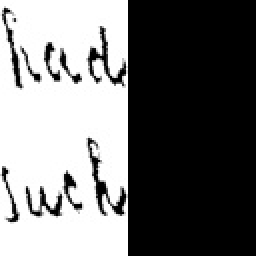 had
such